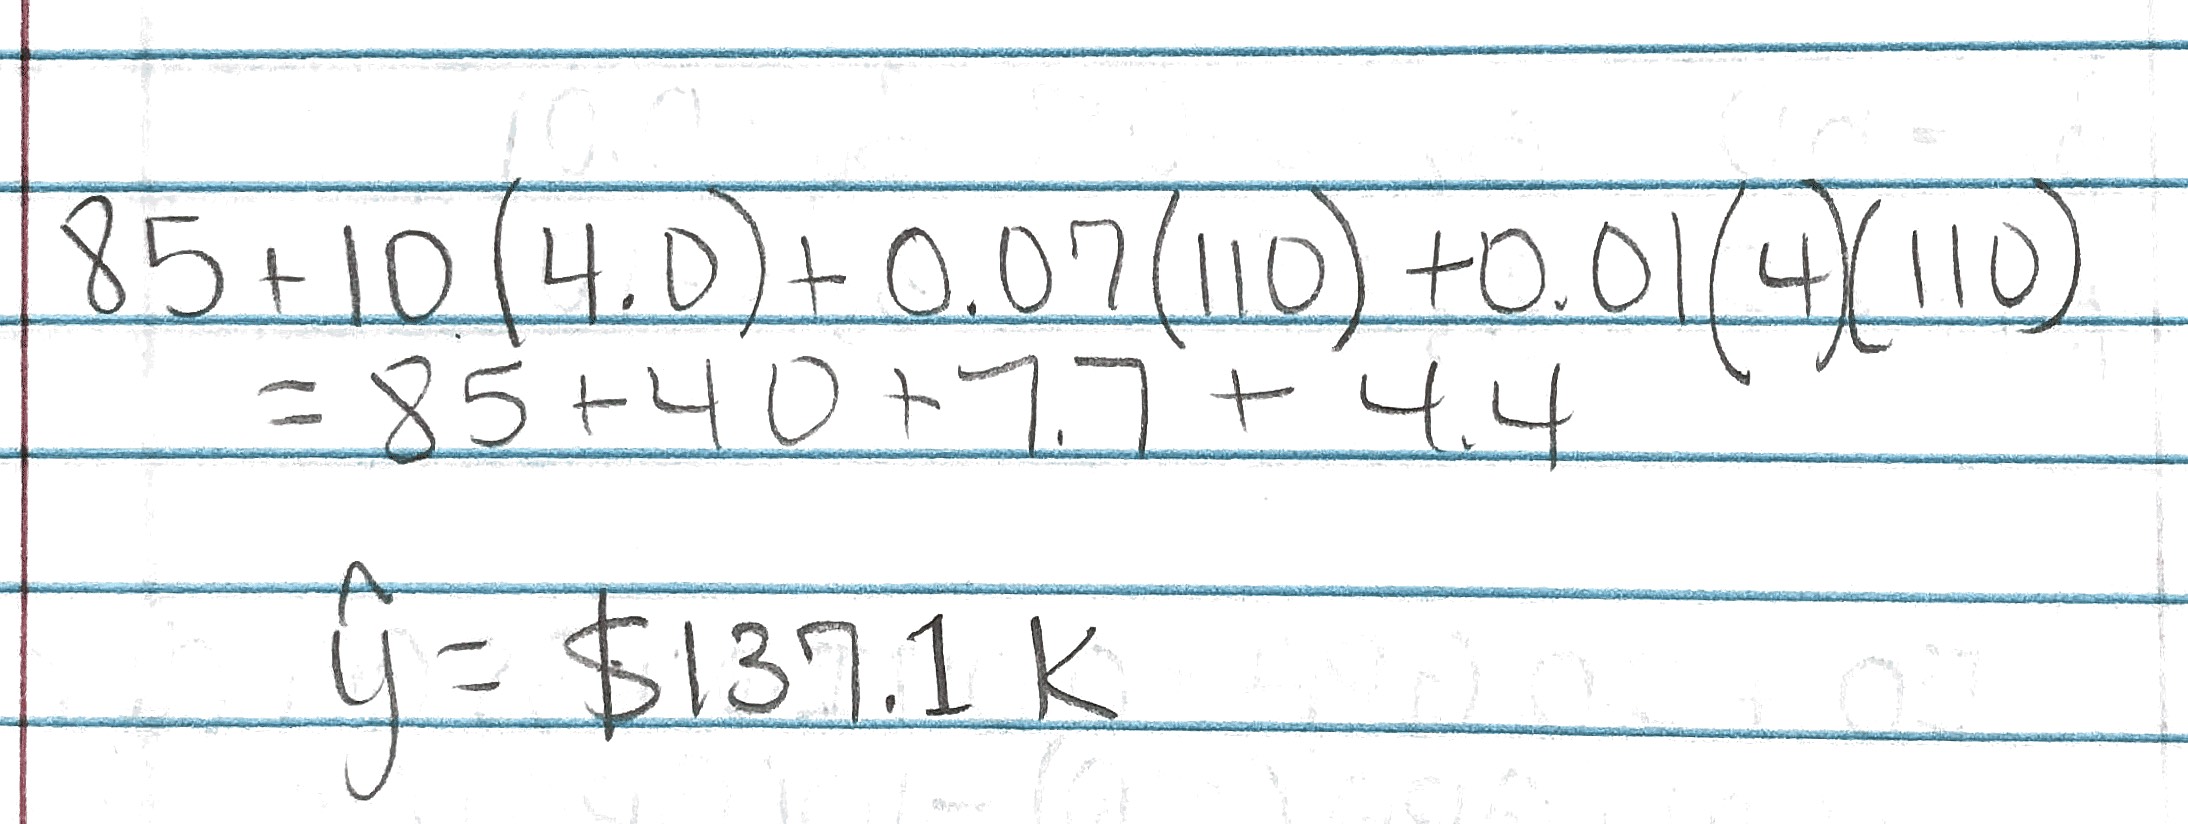 85+10(4.0)+0.07(110)+0.01(4)(110)
=85+40+7.7+4.4
ŷ=$137.1K